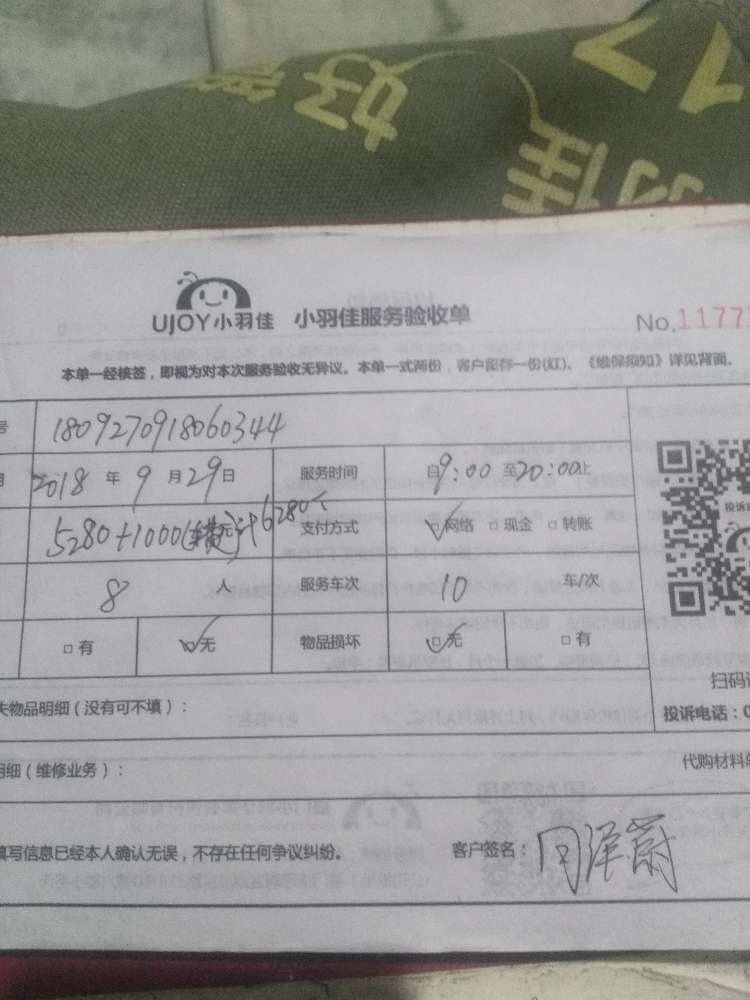 好
佳
UJOY小羽佳 小羽佳服务验收单
No.1177
本单一经核签，即视为对本次服务验收无异议。本单一式两份，客户留存一份(红)。《维保须知》详见背面。
号 180927091806034​4
2018 年 9 月 29 日 服务时间 自9:00 至20:00止
5280+1000 计6280 支付方式 ☑网络 □现金 □转账
8 人 服务车次 10 车/次
□有 ☑无 物品损坏 ☑无 □有
投诉
扫码
失物品明细（没有可不填）：
投诉电话：0
明细（维修业务）：
代购材料
填写信息已经本人确认无误，不存在任何争议纠纷。 客户签名：